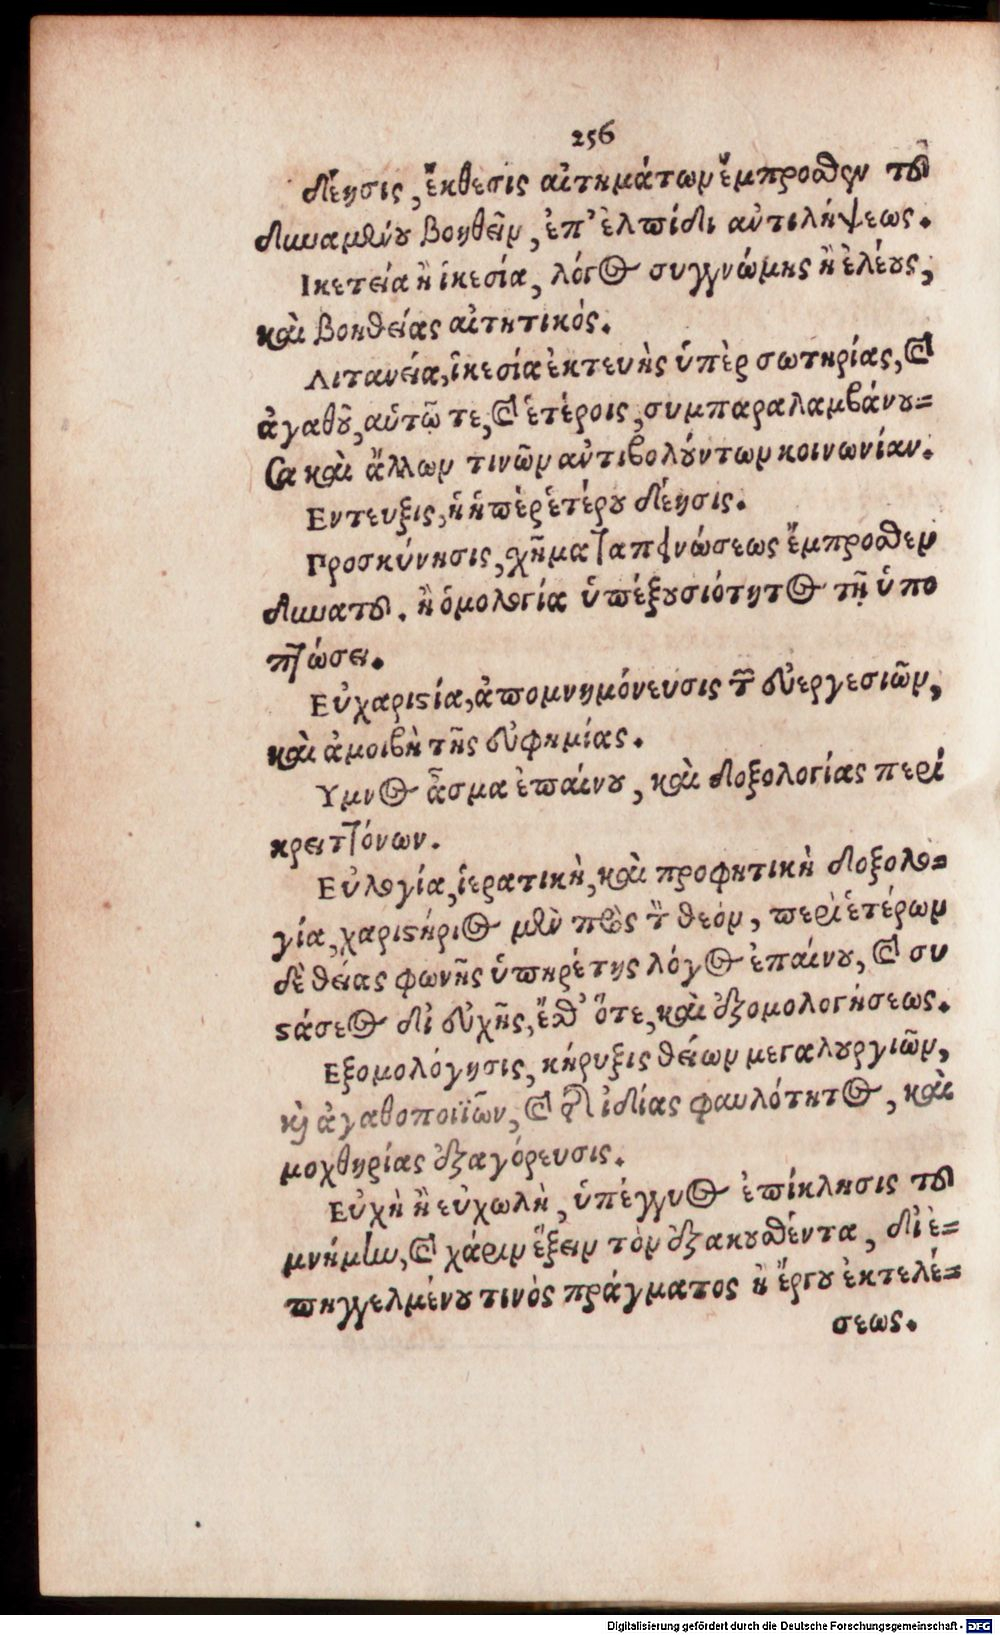 256
δέησις, ἔκθεσις αἰτημάτων ἔμπροσθεν τοῦ
δυναμένου βοηθεῖν, ἐπ’ ἐλπίδι ἀντιλήψεως.
Ικετεία ἢ ἱκεσία, λόγος συγγνώμης ἢ ἐλέους,
καὶ βοηθείας αἰτητικὸς.
Λιτανεία, ἱκεσία ἐκτενὴς ὑπὲρ σωτηρίας, καὶ
ἀγαθοῦ, αὑτῷ τε, καὶ ἑτέροις, συμπαραλαμβάνου-
σα καὶ ἄλλων τινῶν ἀντιβολούντων κοινωνίαν.
Εντευξις, ἡ ὑπὲρ ἑτέρου δέησις.
Προσκύνησις, χῆμα ταπεινώσεως ἔμπροσθεν
δυνατοῦ. ἢ ὁμολογία ὑπεξουσιότητος τῇ ὑπο
πτώσει.
Εὐχαριστία, ἀπομνημόνευσις τῶν εὐεργεσιῶν,
καὶ ἀμοιβὴ τῆς εὐφημίας.
Υμνος ἆσμα ἐπαίνου, καὶ δοξολογίας περὶ
κρειττόνων.
Εὐλογία, ἱερατικὴ, καὶ προφητικὴ δοξολο-
γία, χαριστήριος μὲν πρὸς τὸν θεὸν, περὶ ἑτέρων
δὲ θείας φωνῆς ὑπηρέτης λόγος ἐπαίνου, καὶ συ
στάσεος δι εὐχῆς, ἔσθ’ ὅτε, καὶ ἐξομολογήσεως.
Εξομολόγησις, κήρυξις θείων μεγαλουργιῶν,
καὶ ἀγαθοποιϊῶν, καὶ τῆς ἰδίας φαυλότητος, καὶ
μοχθηρίας ἐξαγόρευσις.
Εὐχὴ ἢ εὐχωλὴ, ὑπέγγυος ἐπίκλησις τοῦ
μνήμην, καὶ χάριν ἕξειν τὸν ἐξακουσθέντα, δι ἐ-
πηγγελμένου τινὸς πράγματος ἢ ἔργου ἐκτελέ-
σεως.
Digitalisierung gefördert durch die Deutsche Forschungsgemeinschaft - DFG